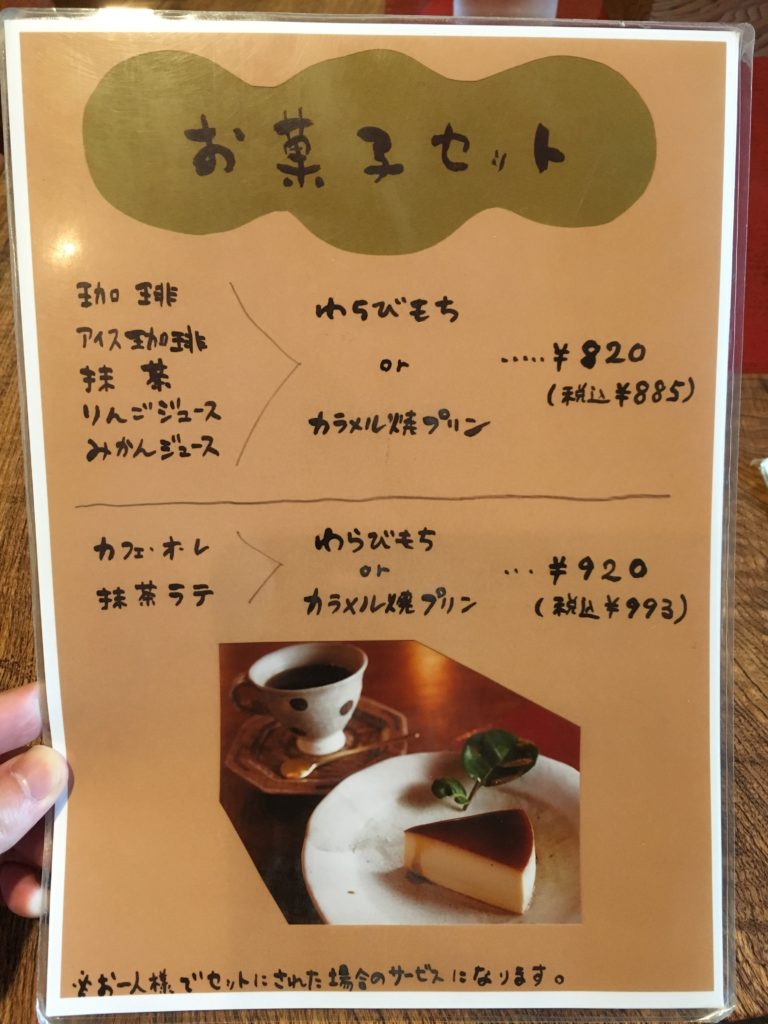 お菓子セット
珈琲
アイス珈琲
抹茶
りんごジュース
みかんジュース
わらびもち
or
カラメル焼プリン
.....¥820
(税込¥885)
カフェ・オ・レ
抹茶ラテ
わらびもち
or
カラメル焼プリン
...¥920
(税込¥993)
※お一人様でセットにされた場合のサービスになります。